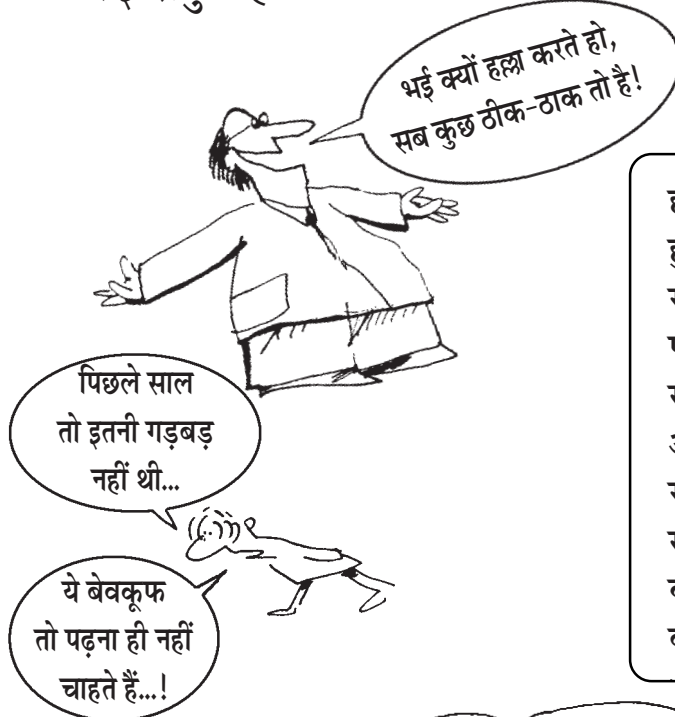 भई क्यों हल्ला करते हो,
सब कुछ ठीक-ठाक तो है!
पिछले साल
तो इतनी गड़बड़
नहीं थी...
ये बेवकूफ
तो पढ़ना ही नहीं
चाहते हैं...!